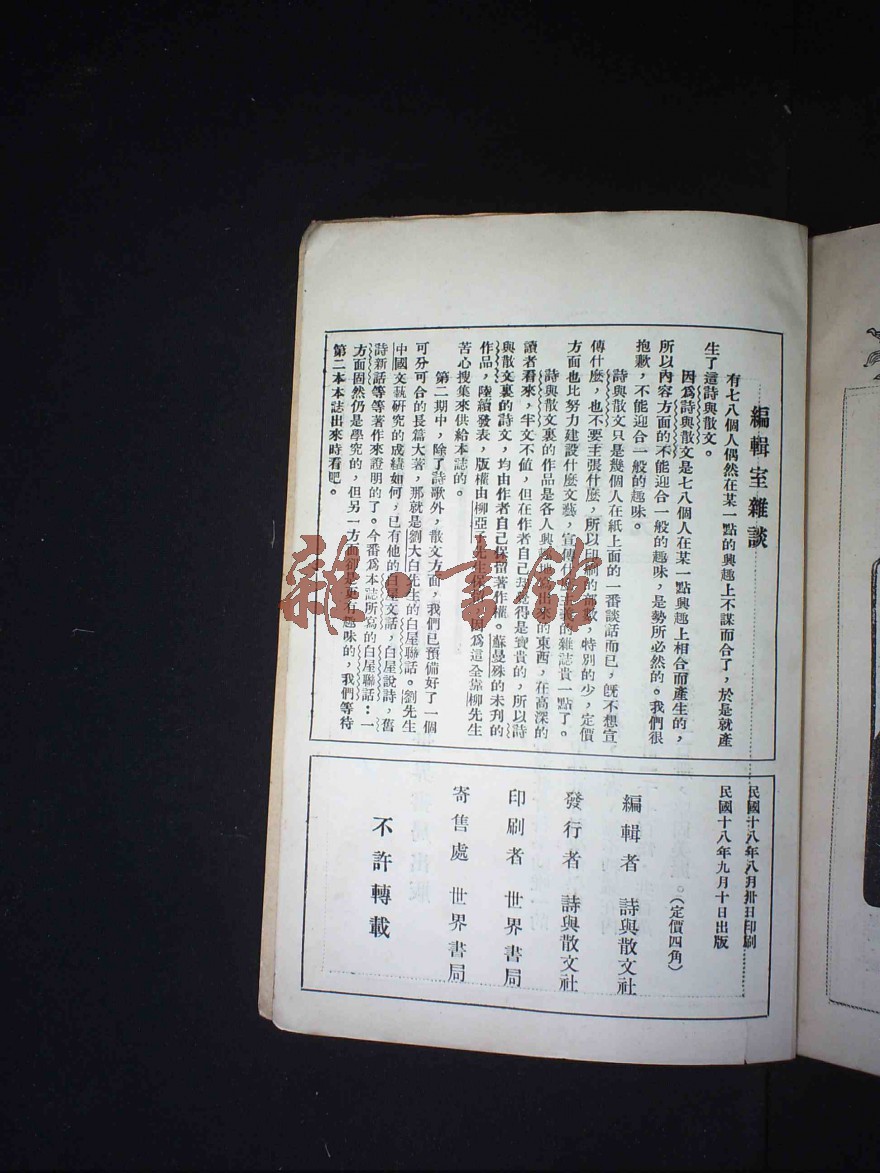 編輯室雜談
有七八個人偶然在某一點的興趣上不謀而合了，於是就產
生了這詩與散文。
因爲詩與散文是七八個人在某一點興趣上相合而產生的，
所以內容方面的不能迎合一般的趣味，是勢所必然的。我們很
抱歉，不能迎合一般的趣味。
詩與散文只是幾個人在紙上面的一番談話而已，旣不想宣
傳什麽，也不要主張什麽，所以印刷的部數，特別的少，定價
方面也比努力建設什麽文藝，宣傳什麽主義的雜誌貴一點了。
詩與散文裏的作品是各人興 出來的東西，在高深的
讀者看來，半文不値，但在作者自己却覺得是寶貴的，所以詩
與散文裏的詩文，均由作者自己保留著作權。蘇曼殊的未刋的
作品，陸續發表，版權由柳亞子先生保 因爲這全靠柳先生
苦心搜集來供給本誌的。
第二期中，除了詩歌外，散文方面，我們已預備好了一個
可分可合的長篇大著，那就是劉大白先生的白屋聯話。劉先生
中國文藝研究的成績如何，已有他的白屋文話，白屋說詩，舊
詩新話等等著作來證明的了。今番爲本誌所寫的白屋聯話：一
方面固然仍是學究的，但另一方面卻是更有趣味的，我們等待
第二本本誌出來時看吧。
民國十八年八月卅日印刷
民國十八年九月十日出版
（定價四角）
編輯者 詩與散文社
發行者 詩與散文社
印刷者 世界書局
寄售處 世界書局
不許轉載
雜·書館